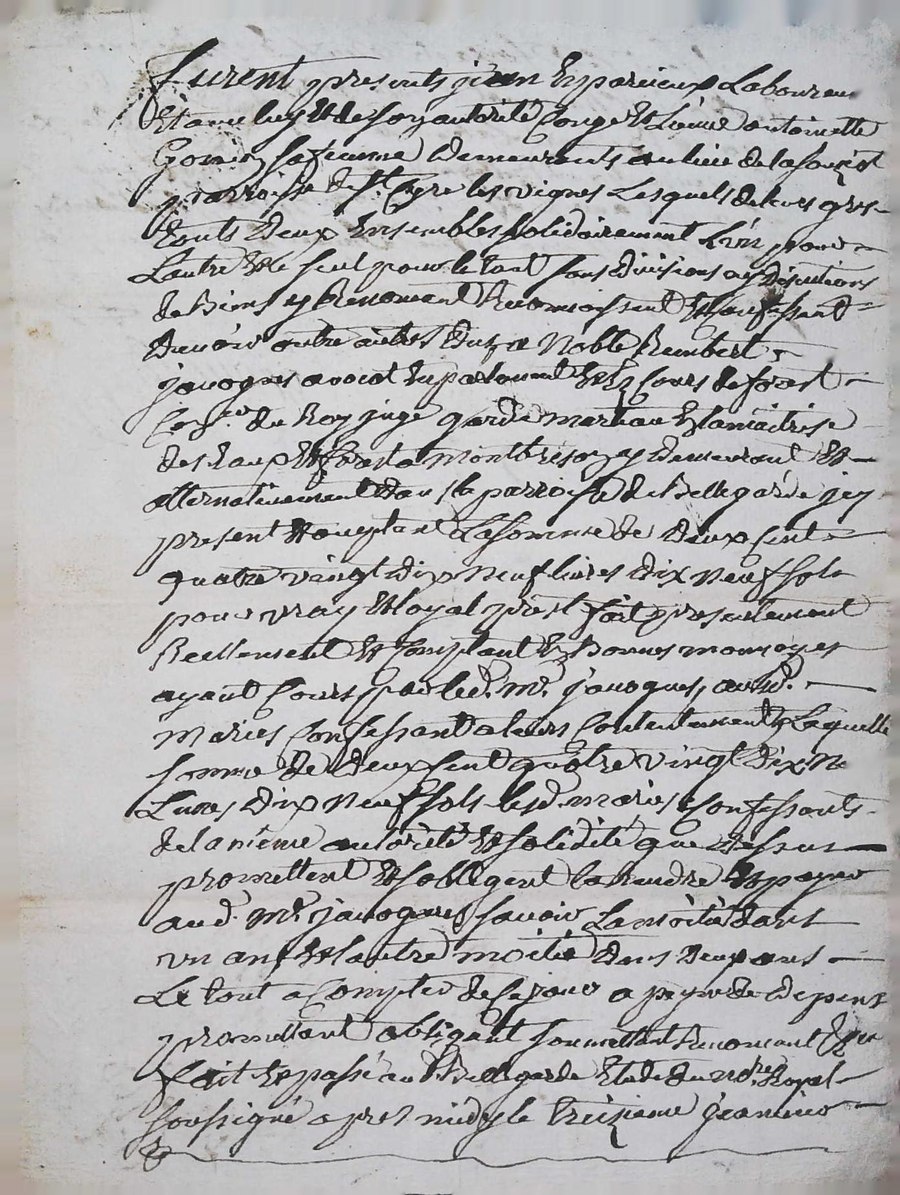 furent presents jean Laboureur
Et avec luy Et de son autorité Congé Et Licence antoinette
sa femme demeurants au lieu de
parroisse de St. Cyre les vignes Lesquels de leurs gres
touts deux Ensembles solidairement L'un pour
L'autre Et le seul pour le tout sans divisions ny discutions
de biens y Renoncant Reconnoissent Et confessent
devoir outre autres dus a Noble Rembert
javogues avocat En parlement Et Es Cours de forest
du Roy juge garde marteau En la maitrise
des Eaux Et forest a montbrison y demeurant Et
alternativement dans la parroisse de Bellegarde jcy
present Et acceptant La somme de deux Cent
quatre vingt dix Neuf livres dix Neuf sols
pour vray Et loyal prest fait presentement
Reellement Et Comptant En bonnes monnoyes
ayant Cours par led. mr. javogues, ausd.
mariés Confessants a leurs Contentement Laquelle
somme de deux Cent quatre vingt dix Ne
Livres dix Neuf sols lesd. mariés Confessants
de la même autorité Et solidité que dessus
promettent Et s'obligent la Rendre Et payer
aud. mr. javogues savoir La moitié dans
un an Et l'autre moitié dans deux ans
Le tout a Compter de Ce jour a peyne de depens
promettant obligeant soumettant Renoncant
fait Et passé aud. Bellegarde Etude du notre. Royal
soussigné apres midy le treizieme janvier